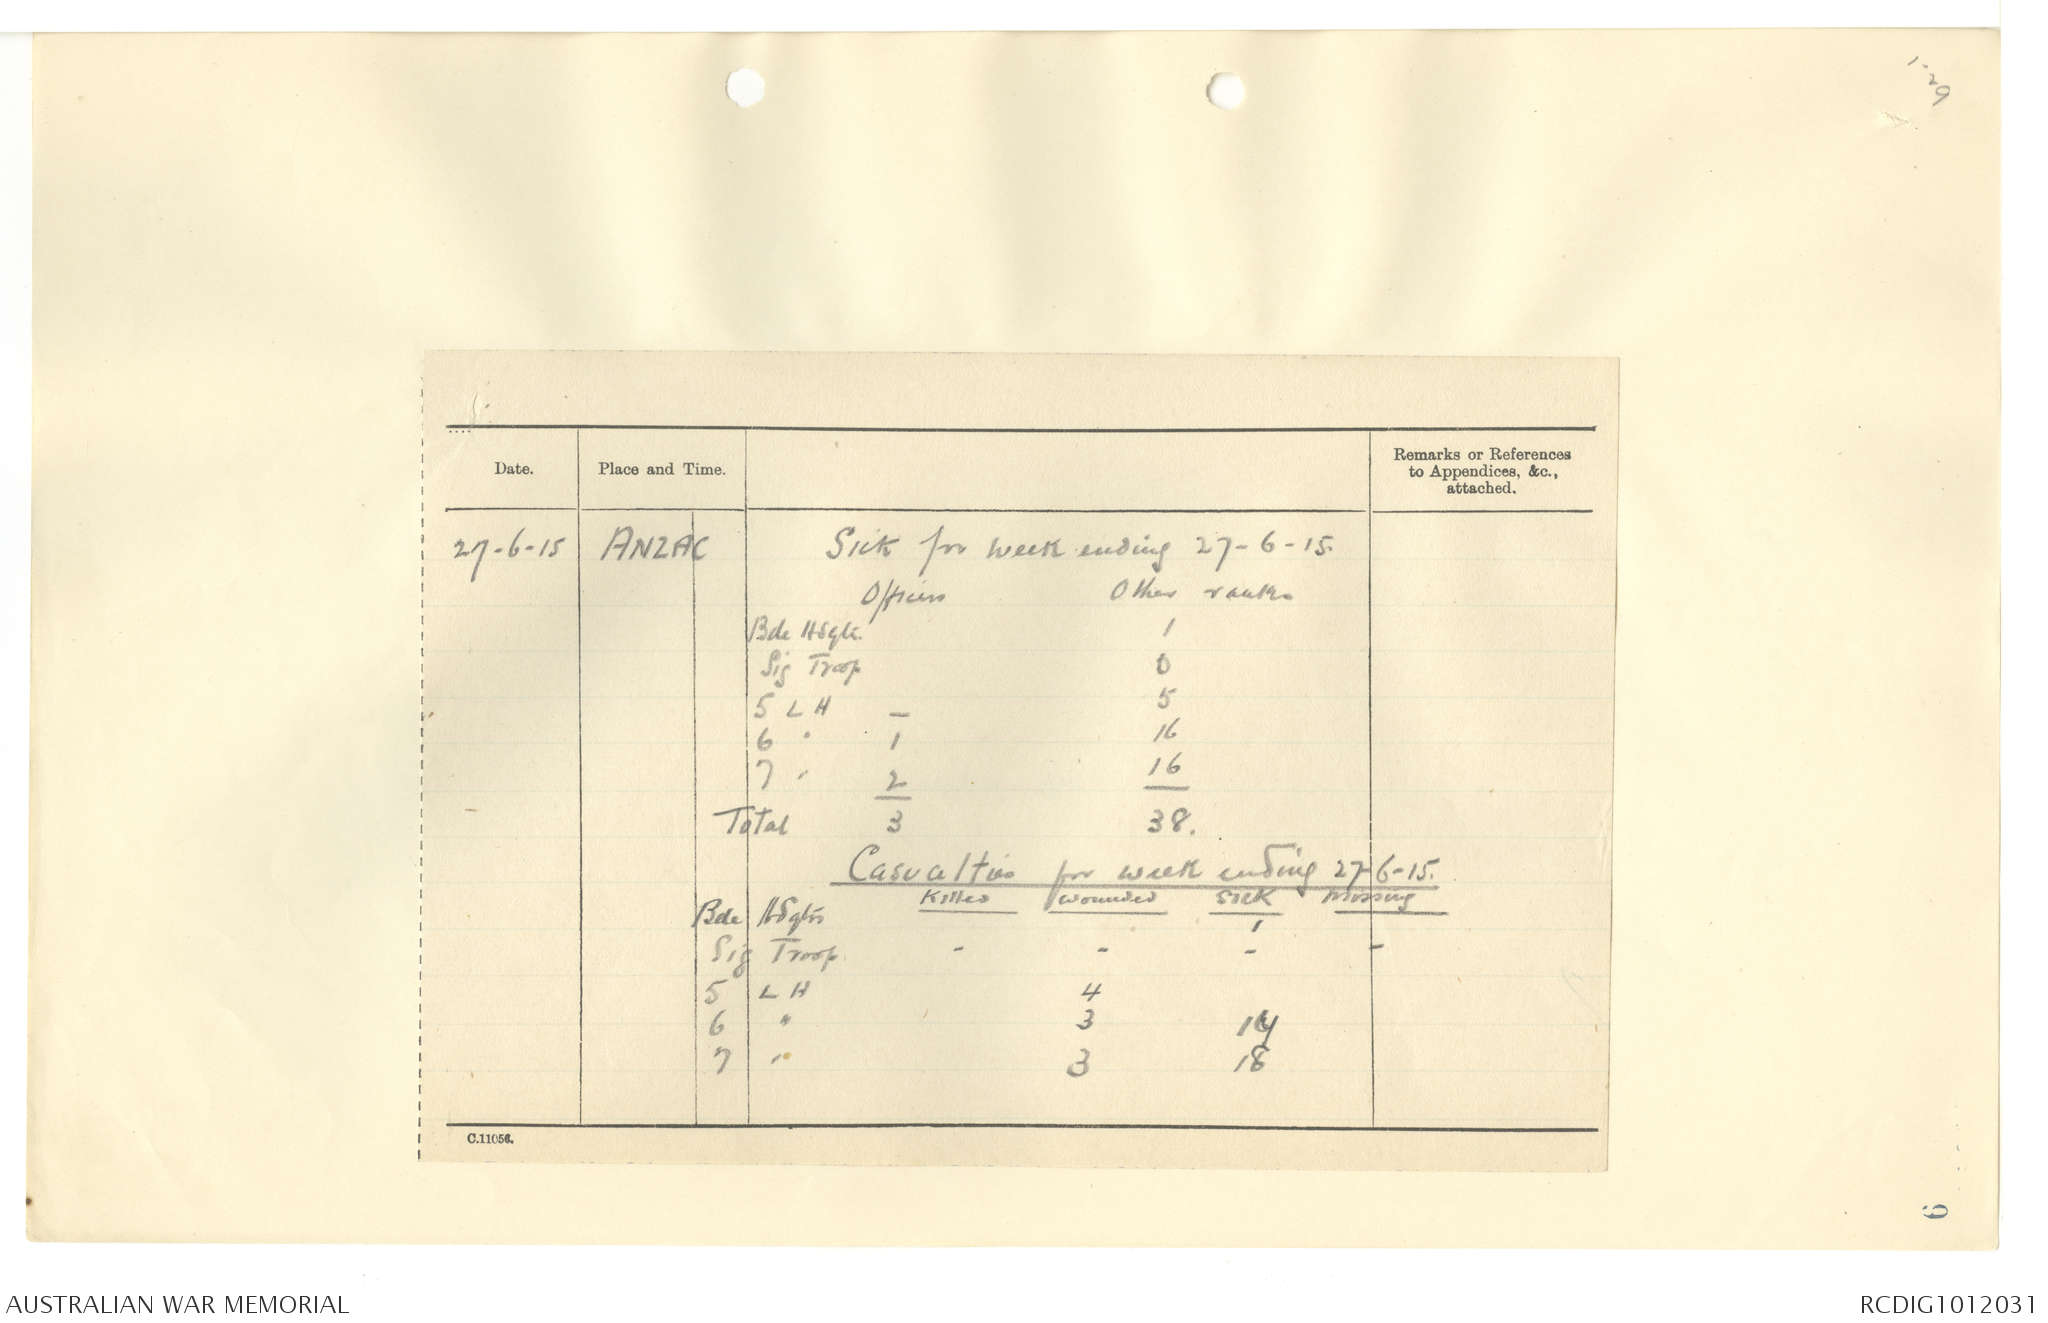 1-29
Date.
Place and Time.
Remarks or References
to Appendices, &c.,
attached.
27-6-15 ANZAC Sick for week ending 27-6-15.
Officers Other ranks
Bde Hdqts. 1
Sig Troop 0
5 L H — 5
6 " 1 16
7 " 2 16
Total 3 38.
Casualties for week ending 27-6-15.
Killed Wounded Sick Missing
Bde Hdqtrs 1
Sig Troop - - - -
5 L H 4
6 " 3
7 " 3 18
C.11056.
6
AUSTRALIAN WAR MEMORIAL
RCDIG1012031